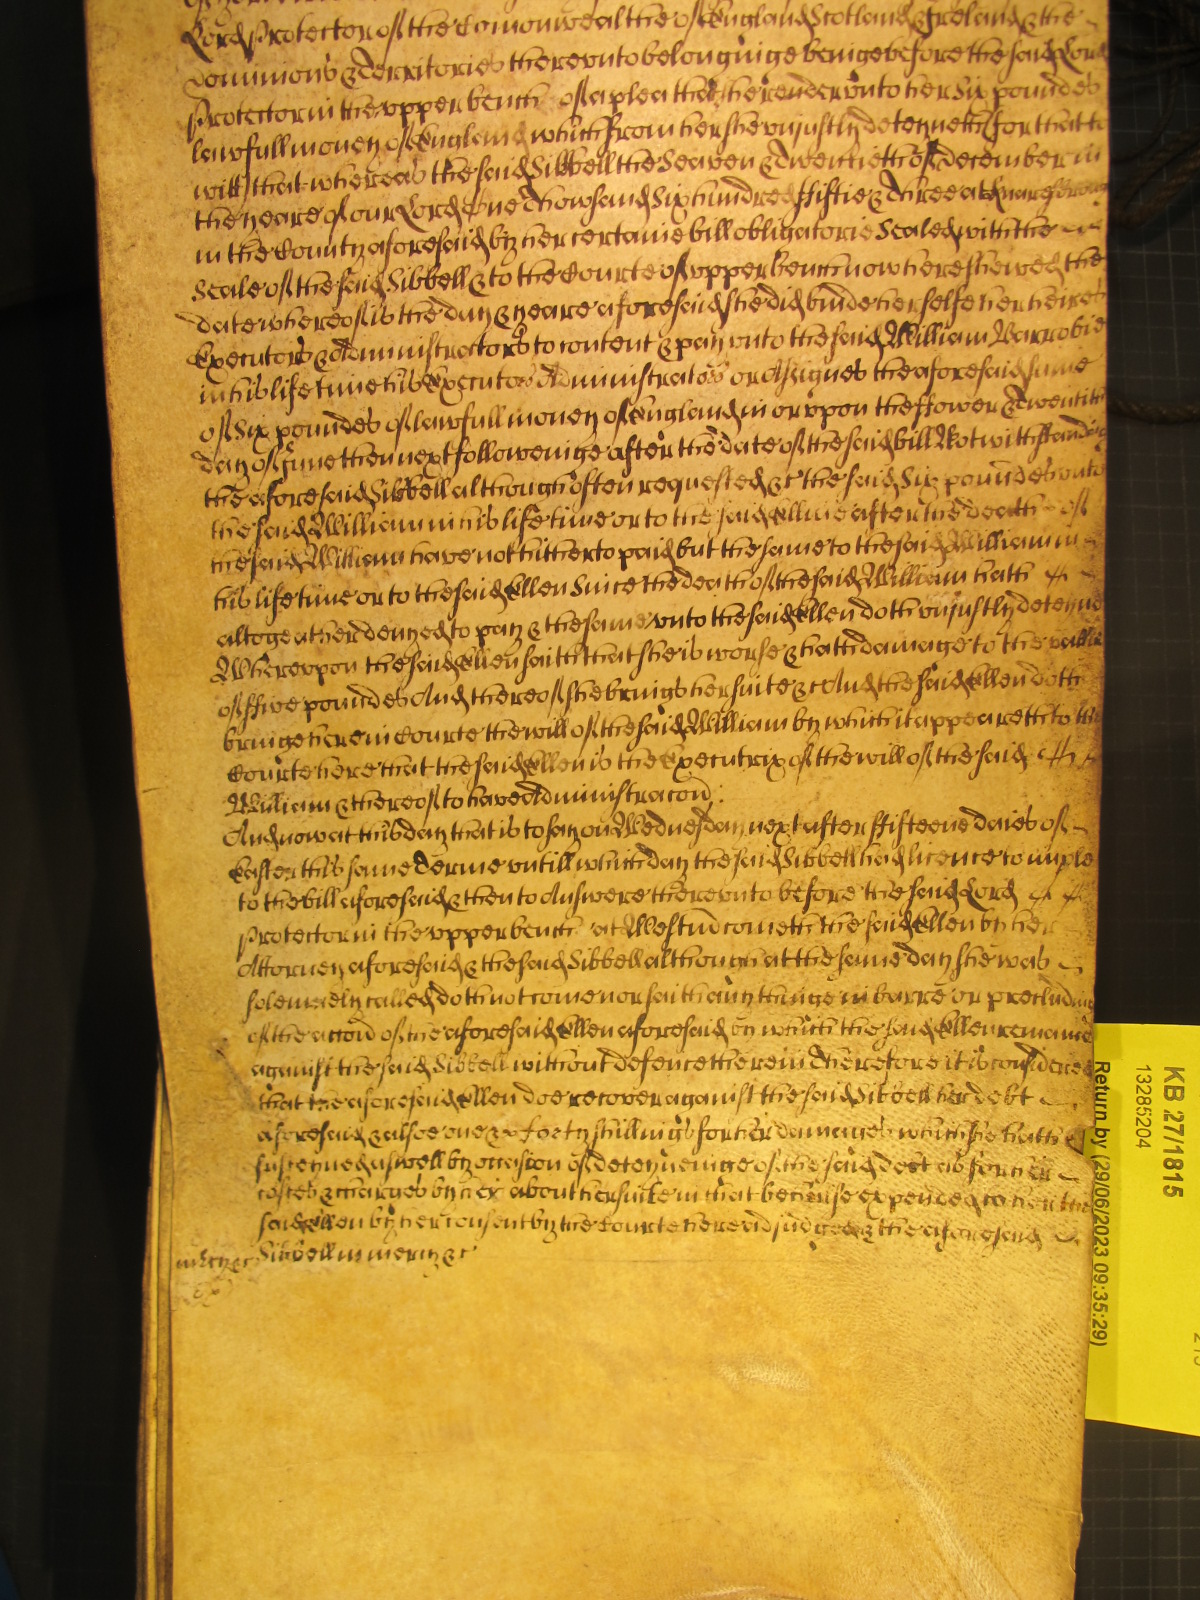 Lord Protector of the Comonwealthe of England Scotland & Ireland & the
dominions & Territories therevnto belonginge beinge before the said Lord
Protector in the vpper bench of a plea that she render vnto her Six poundes
lawfull money of England which from her she vniustly deteyneth for that to
witt that whereas the said Sibbell the Seaven & Twentieth of December in
the yeare of our Lord One Thowsand Six hundred ffiftie & Three at Knaresbrough
in the County aforesaid by her certaine bill obligatorie Sealed with the
Seale of the said Sibbell & to the Courte of vpper bench now here shewed the
date whereof is the day & yeare aforesaid she did binde her selfe her heires
Executors & Administrators to content & pay vnto the said William Barrobie
in his life time his Executors Administrators or Assignes the aforesaid sume
of Six poundes of lawfull money of England in or vpon the flower & Twentith
day of June then next followeinge after the date of the said bill Notwithstandinge
the aforesaid Sibbell although often requested &c the said Six poundes vnto
the said William in his life time or to the said Ellene after the death of
the said William have not hitherto paid but the same to the said William in
his life time or to the said Ellen Since the death of the said William hath
altogeather denyed to pay & the same vnto the said Ellen doth vniustly deteyne
Wherevpon the said Ellen saith that she is worse & hath damage to the vallue
of ffive poundes And thereof she brings her suite &c And the said Ellen doth
bringe here in Courte the will of the said William by which it appeareth to the
Courte here that the said Ellen is the Executrix of the will of the said
William & thereof to have Administracon :
And now at this day that is to say on Wednesday next after ffifteene daies of
Easter this same Terme vntill which day the said Sibbell had licence to imple
to the bill aforesaid & then to Answere therevnto before the said Lord
Protector in the vpper bench at Westm cometh the said Ellen by her
Attorney aforesaid & the said Sibbell although at the same day she was
solemnely called doth not come nor saith any thinge in barre or precludinge
of the accon of the aforesaid Ellen aforesaid by which the said Ellen remaines
against the said Sibbell without defence therein Therefore it is considered
that the aforesaid Ellen doe recover against the said Sibbell her debt
aforesaid & alsoe forty shillings for her damages which she hath
susteyned aswell by occasion of deteyneinge of the said debt as for her
costes & charges by her about her suite in that behalfe expended to her the
said Ellen by her consent by the Courte here adjudged & the aforesaid
Sibbell in mercy &c
KB 27/1815
13285204
Return by (29/06/2023 09:35:29)